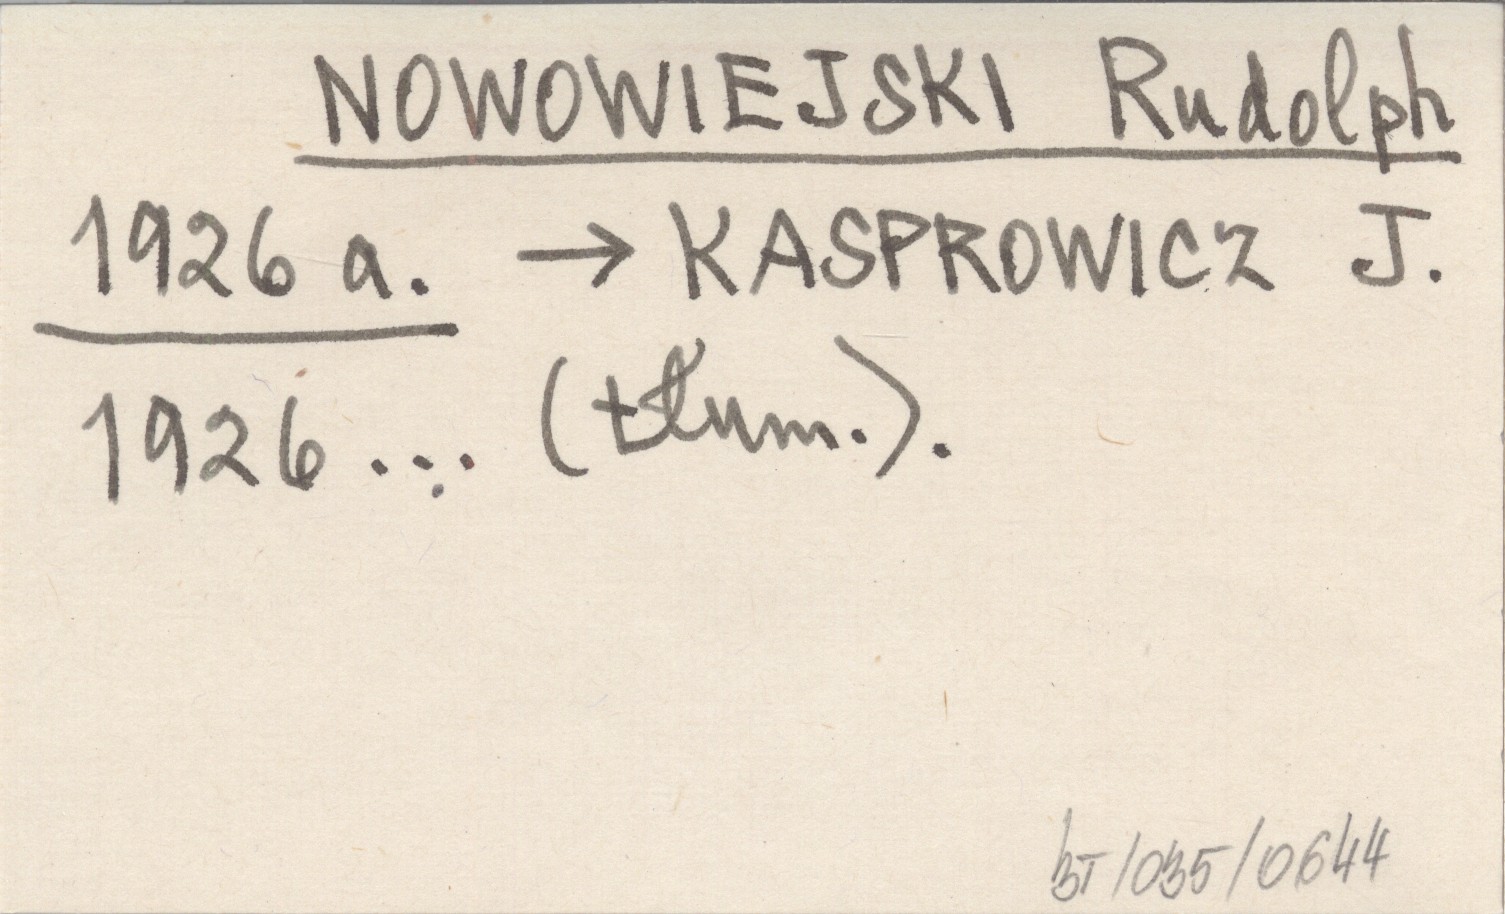 NOWOWIEJSKI Rudolph
1926 a. → KASPROWICZ J.
1926 ... (tłum.).
BT/035/0644